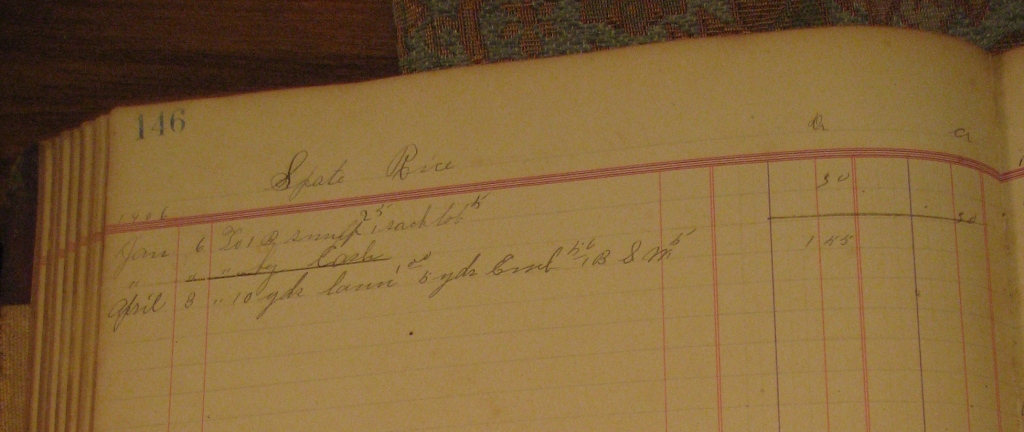 146
Dr Cr
Spate Rice
1906
Jan 6 To 1 B snuff 25 1 sack tob 5 30
" " By Cash 30
April 8 " 10 yds lawn 1 00 5 yds 50 1 B S 5 1 55